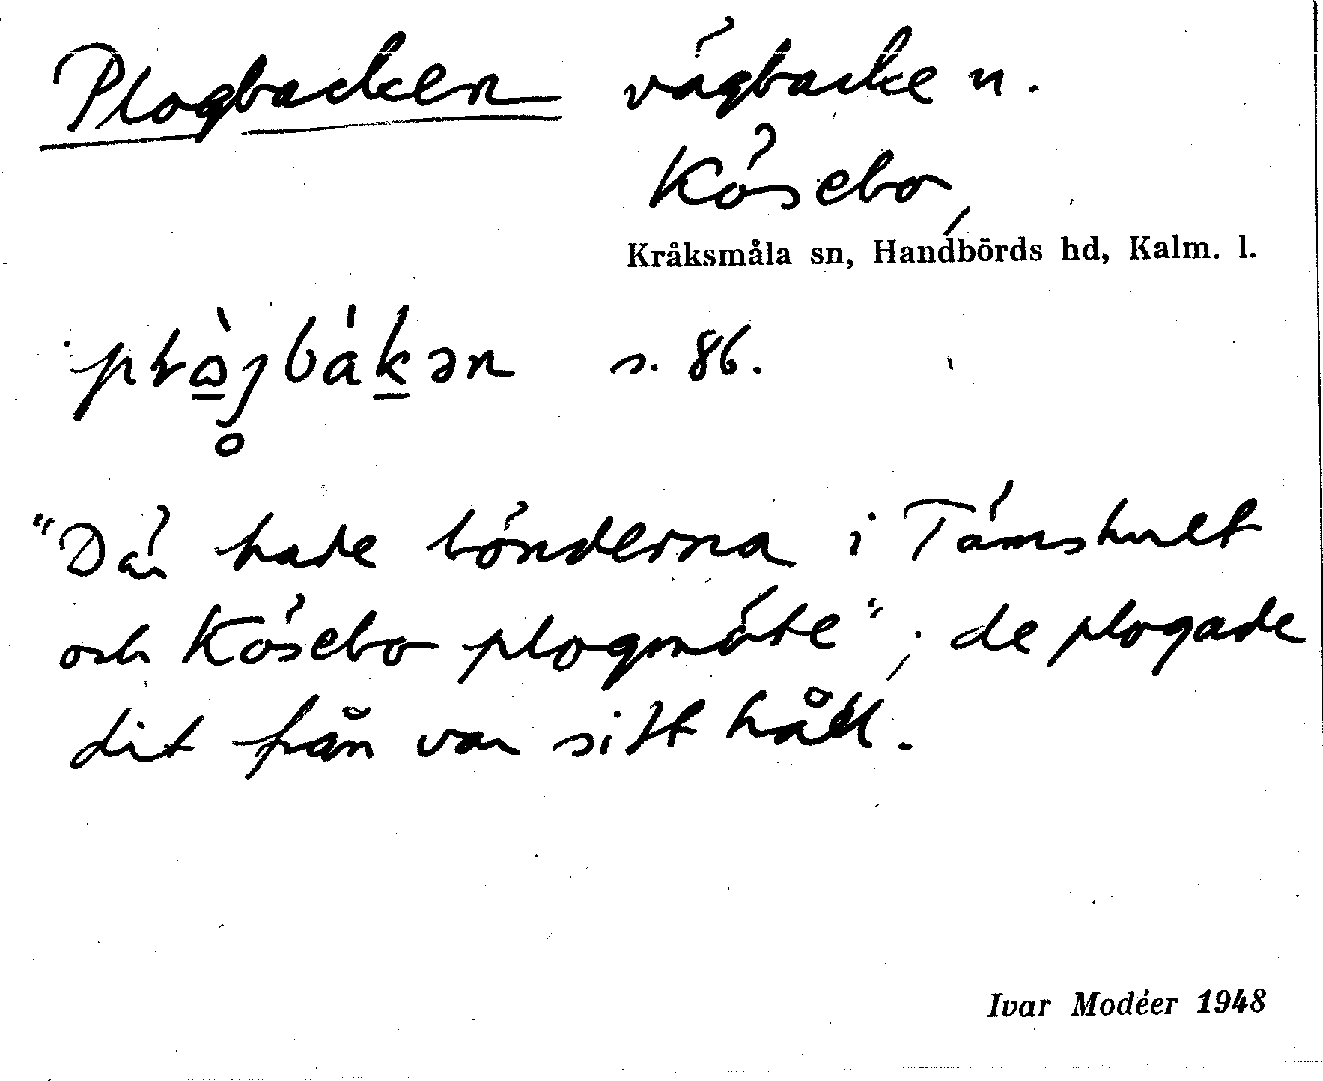 Plogbacken vägbacken.
Kösebo,
Kråksmåla sn, Handbörds hd, Kalm. l.
s. 86.
"Där hade bönderna i Tämshult
och Kösebo plogmöte"; de plogade
dit från var sitt håll.
Ivar Modéer 1948